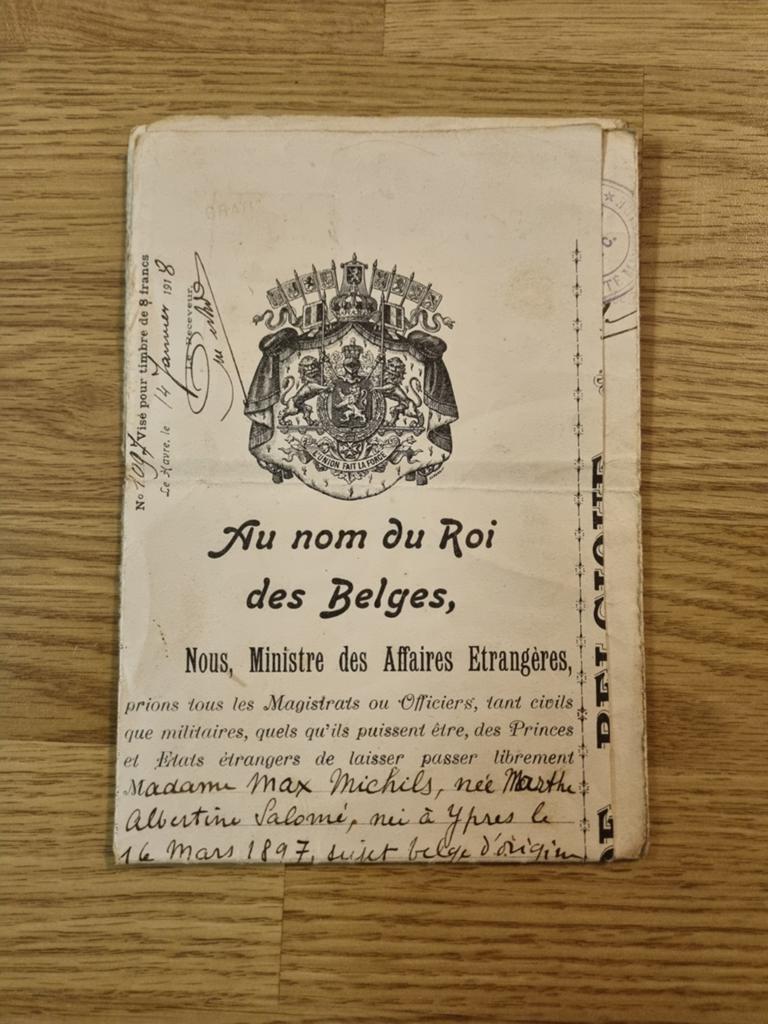 No 1097 Visé pour timbre de 8 francs
Le Havre, le 14 Janvier 1918
Le Receveur,
L'UNION FAIT LA FORCE
Au nom du Roi
des Belges,
Nous, Ministre des Affaires Etrangères,
prions tous les Magistrats ou Officiers, tant civils
que militaires, quels qu'ils puissent être, des Princes
et Etats étrangers de laisser passer librement
Madame Max Michils, née Marthe
Albertine Salomé, née à Ypres le
16 Mars 1897, sujet belge d'origine
DE BELGIQUE